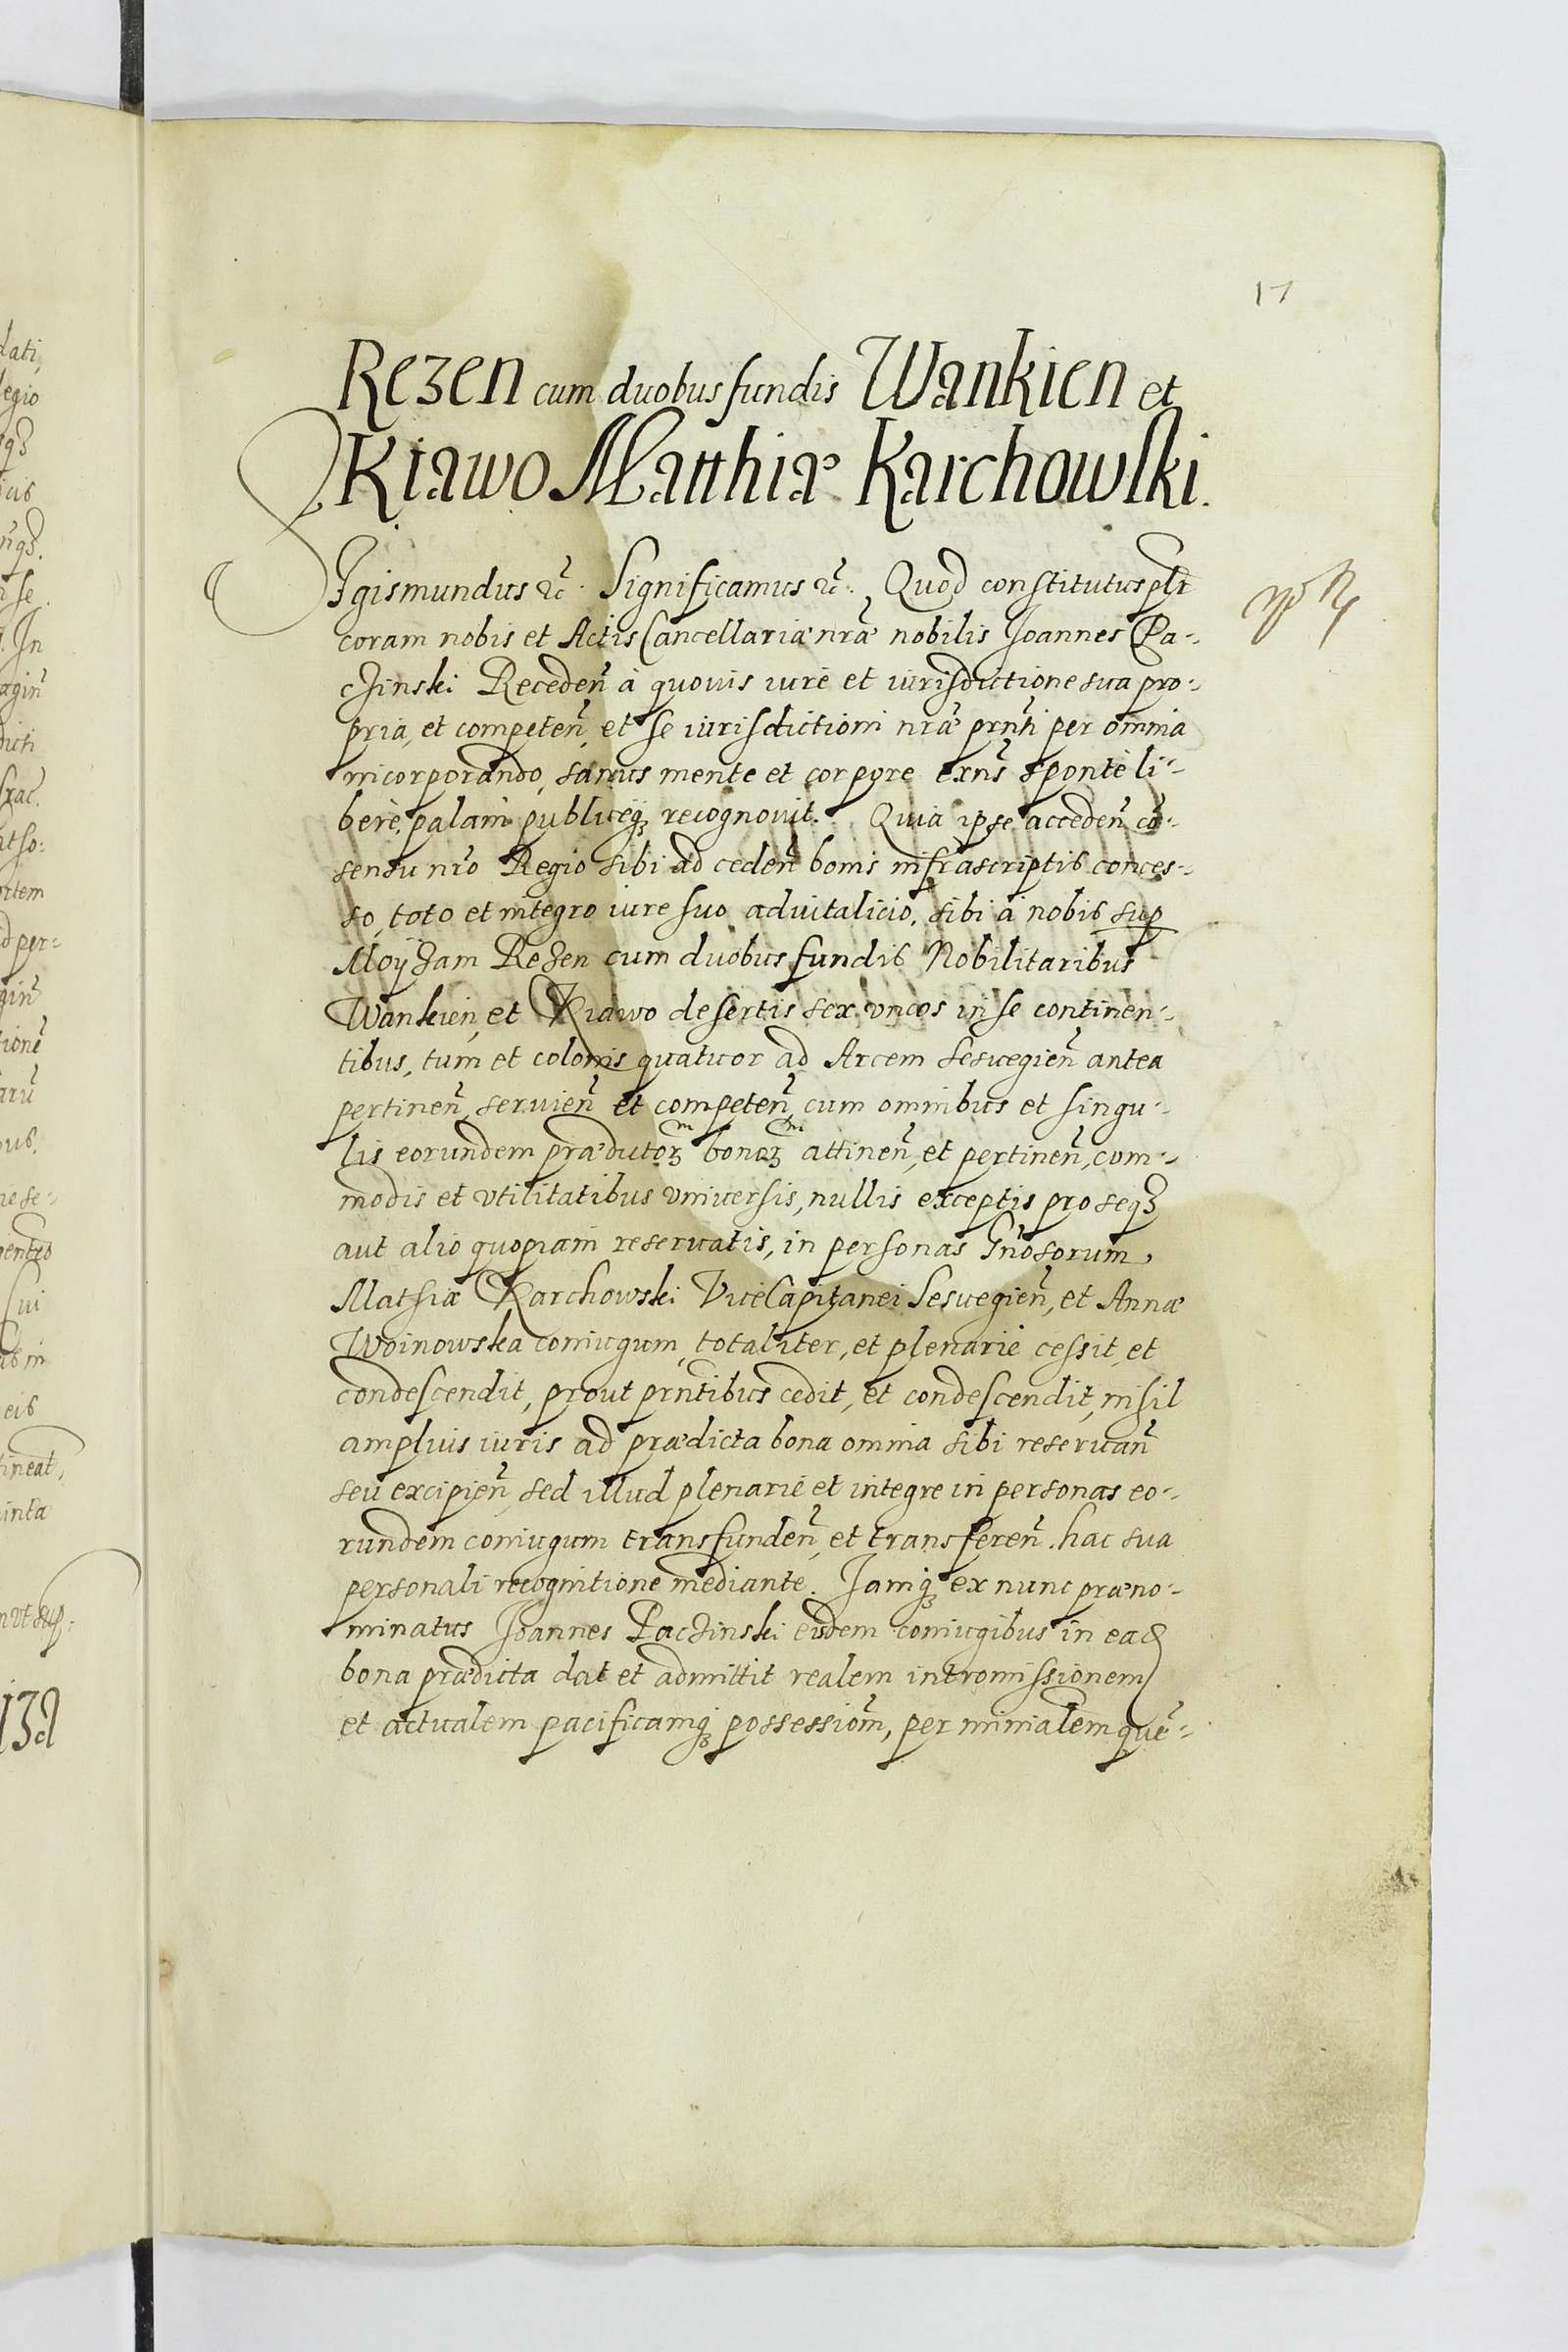 17
Rezen cum duobus fundis Wankien et
Kiawo Matthiæ Karchowski.
Sigismundus &c. Significamus &c. Quod constitutus plr
coram nobis et Actis Cancellariæ nræ nobilis Joannes Pa-
czinski Receden̄ à quouis iure et iurisdictione sua pro-
pria, et competen̄, et se iurisdictioni nræ prn̄ti per omnia
incorporando, sanus mente et corpore exn̄s sponte li-
berè, palam publiceq₃ recognouit. Quia ipse acceden̄ cō-
sensu nr̄o Regio sibi ad ceden̄ bonis infrascriptis conces-
so, toto et integro iure suo aduitalicio, sibi à nobis sup
Moÿzam Rezen cum duobus fundis Nobilitaribus
Wankien, et Kiawo desertis sex vncos in se continen-
tibus, tum et colonis quatuor ad Arcem Sesuegien̄ antea
pertinen̄, seruien̄ et competen̄, cum omnibus et singu-
lis eorundem prædictorꝫ bonorꝫ attinen̄, et pertinen̄, com-
modis et vtilitatibus vniuersis, nullis exceptis pro seq₃
aut alio quopiam reseruatis, in personas Gn̄osorum
Mathiæ Karchowski ViceCapitanei Sesuegien̄, et Annæ
Woinowska coniugum, totaliter, et plenarie cessit, et
condescendit, prout prn̄tibus cedit, et condescendit, nihil
amplius iuris ad prædicta bona omnia sibi reseruan̄
seu excipien̄, sed illud plenarie et integre in personas eo-
rundem coniugum transfunden̄, et transferen̄. hac sua
personali recognitione mediante. Jamq₃ ex nunc præno-
minatus Joannes Paczinski eisdem coniugibus in ead
bona prædicta dat et admittit realem intromissionem
et actualem pacificamq₃ possessiom̄, per minialem quē-